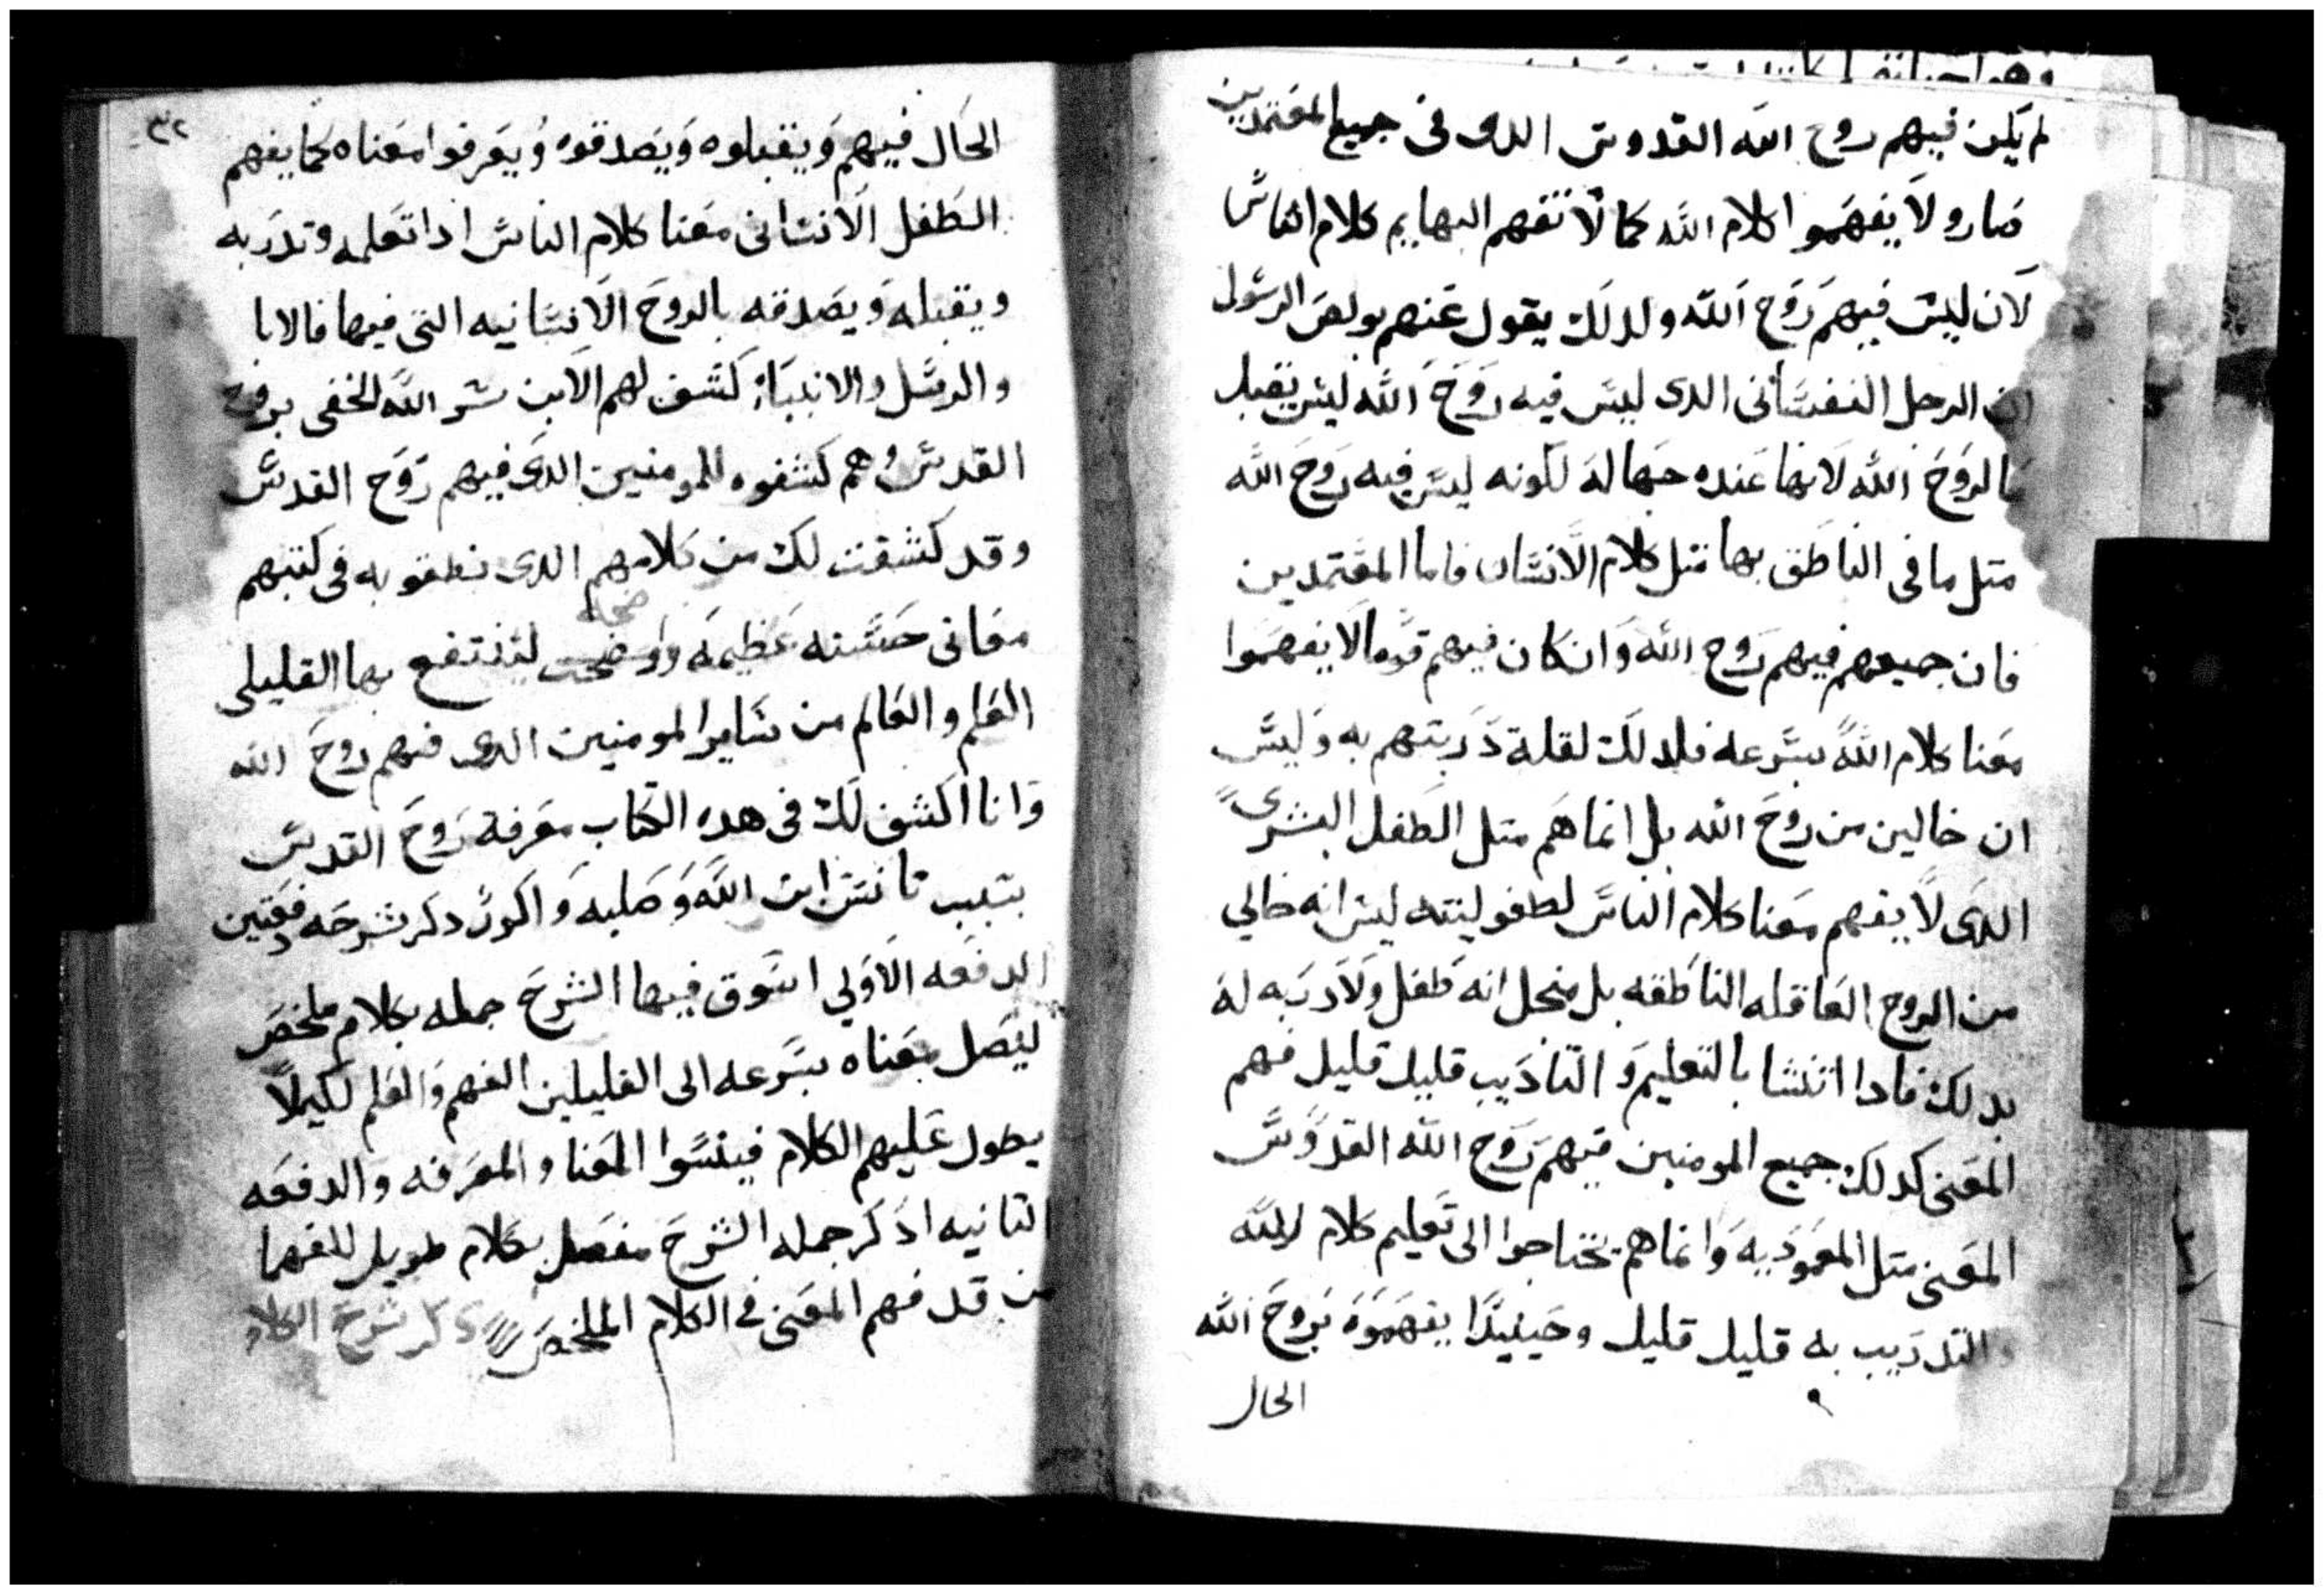 لم يكن فيهم روح الله القدوس الدى فى جميع المعتمدين
صارو لا يفهموا كلام الله كما لا تفهم البهايم كلام الناس
لان ليس فيهم روح الله ولدلك يقول عنهم بولص الرسول
ان الرجل النفسانى الدى ليس فيه روح الله ليس يقبل
ما لروح الله لانها عنده جهاله لكونه ليس فيه روح الله
متل ما فى الناطق بها متل كلام الانسان فاما المعتمدين
فان جميعهم فيهم روح الله وان كان فيهم قوما لا يفهموا
معنا كلام الله بسرعه فلدلك لقلة دربتهم به وليس
ان خالين من روح الله بل انما هم متل الطفل البشرى
الدى لا يفهم معنا كلام الناس لطفوليته ليس انه خالي
من الروح العاقله الناطقه بل منجل انه طفل ولا دربه له
بدلك فادا انتشا بالتعليم والتاديب قليل قليل فهم
المعنى كدلك جميع المومنين فيهم روح الله القدوس
المعنى متل المعموديه وانما هم يحتاجوا الى تعليم كلام الله
والتدريب به قليل قليل وحينيدا يفهموه بروح الله
الحال
٣٢
الحال فيهم ويقبلوه ويصدقوه ويعرفوا معناه كما يفهم
الطفل الانسانى معنا كلام الناس ادا تعلمه وتدربه
ويقبله ويصدقه بالروح الانسانيه التى فيها فالابا
والرسل والانبياء كشف لهم الابن سر الله الخفى بروح
القدس وهم كشفوه للمومنين الدى فيهم روح القدس
وقد كشفت لك من كلامهم الدى نطقو به فى كتبهم
معانى حسنه عظيمه واوضحت لينتفع بها القليلى
العلم والعالم من ساير المومنين الدى فيهم روح الله
وانا اكشف لك فى هده الكتاب معرفة روح القدس
بسبب تانس ابن الله وصلبه واكون دكر شرحه دفعتين
الدفعه الاولي اسوق فيها الشرح جمله بكلام ملخص
ليصل معناه بسرعه الى القليلين الفهم والعلم لكيلا
يطول عليهم الكلام فينسوا المعنا والمعرفه والدفعه
التانيه ادكر جمله الشرح مفصل بكلام طويل للفهما
من قد فهم المعنى فى الكلام الملخص دكر شرح الكلام